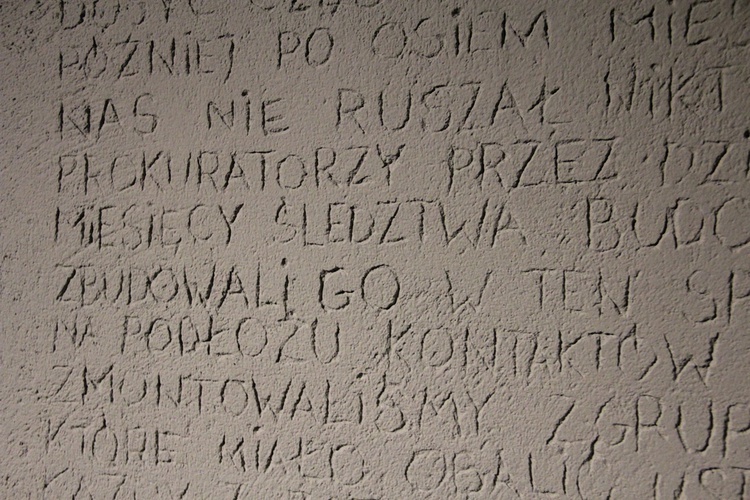 DOSYĆ
PÓŹNIEJ PO OSIEM MIE
NAS NIE RUSZAŁ NIKT
PROKURATORZY PRZEZ DZI
MIESIĘCY ŚLEDZTWA BUDO
ZBUDOWALI GO W TEN SP
NA PODŁOŻU KONTAKTÓW
ZMONTOWALIŚMY ZGRUP
KTÓRE MIAŁO OBALIĆ UST